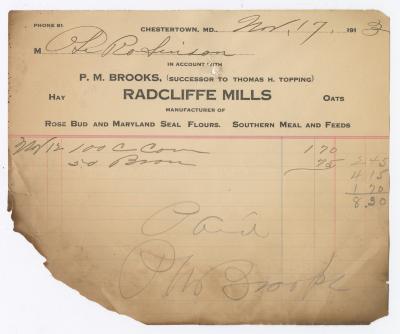 PHONE 81.
CHESTERTOWN, MD., Nov, 17, 1913
M O. L. Robinson
IN ACCOUNT WITH
P. M. BROOKS, (SUCCESSOR TO THOMAS H. TOPPING)
HAY RADCLIFFE MILLS OATS
MANUFACTURER OF
ROSE BUD AND MARYLAND SEAL FLOURS. SOUTHERN MEAL AND FEEDS
Nov 12 100 C Corn 1 70
50 Bran 75 2 45
4 15
1 70
8.30
Paid
P M Brooks